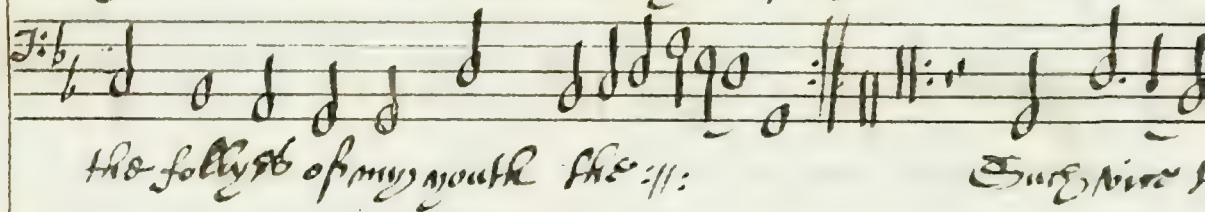 the follyes of my youth the :||: Such vice